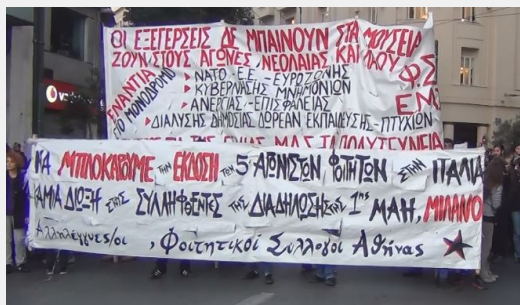 ΟΙ ΕΞΕΓΕΡΣΕΙΣ ΔΕ ΜΠΑΙΝΟΥΝ ΣΤΑ ΜΟΥΣΕΙΑ
ΖΟΥΝ ΣΤΟΥΣ ΑΓΩΝΕΣ ΝΕΟΛΑΙΑΣ ΚΑΙ ΛΑΟΥ
Φ.Σ
ΕΝΑΝΤΙΑ
ΣΤΟ ΜΟΝΟΔΡΟΜΟ
ΝΑΤΟ - Ε.Ε. - ΕΥΡΩΖΩΝΗΣ
ΚΥΒΕΡΝΗΣΗΣ ΜΝΗΜΟΝΙΩΝ
ΕΜ
ΑΝΕΡΓΙΑΣ - ΕΠΙΣΦΑΛΕΙΑΣ
ΔΙΑΛΥΣΗΣ ΔΗΜΟΣΙΑΣ ΔΩΡΕΑΝ ΕΚΠΑΙΔΕΥΣΗΣ - ΠΤΥΧΙΩΝ
ΓΕΝΙΑΣ ΜΑΣ ΤΑ ΠΟΛΥΤΕΧΝΕΙΑ
vodafone
ΝΑ ΜΠΛΟΚΑΡΟΥΜΕ ΤΗΝ ΕΚΔΟΣΗ ΤΩΝ 5 ΑΓΩΝΙΣΤΩΝ ΦΟΙΤΗΤΩΝ ΣΤΗΝ ΙΤΑΛΙΑ
ΚΑΜΙΑ ΔΙΩΞΗ ΣΤΟΥΣ ΣΥΛΛΗΦΘΕΝΤΕΣ ΤΗΣ ΔΙΑΔΗΛΩΣΗΣ ΤΗΣ 1ης ΜΑΗ, ΜΙΛΑΝΟ
Αλληλέγγυες/οι , Φοιτητικοί Σύλλογοι Αθήνας